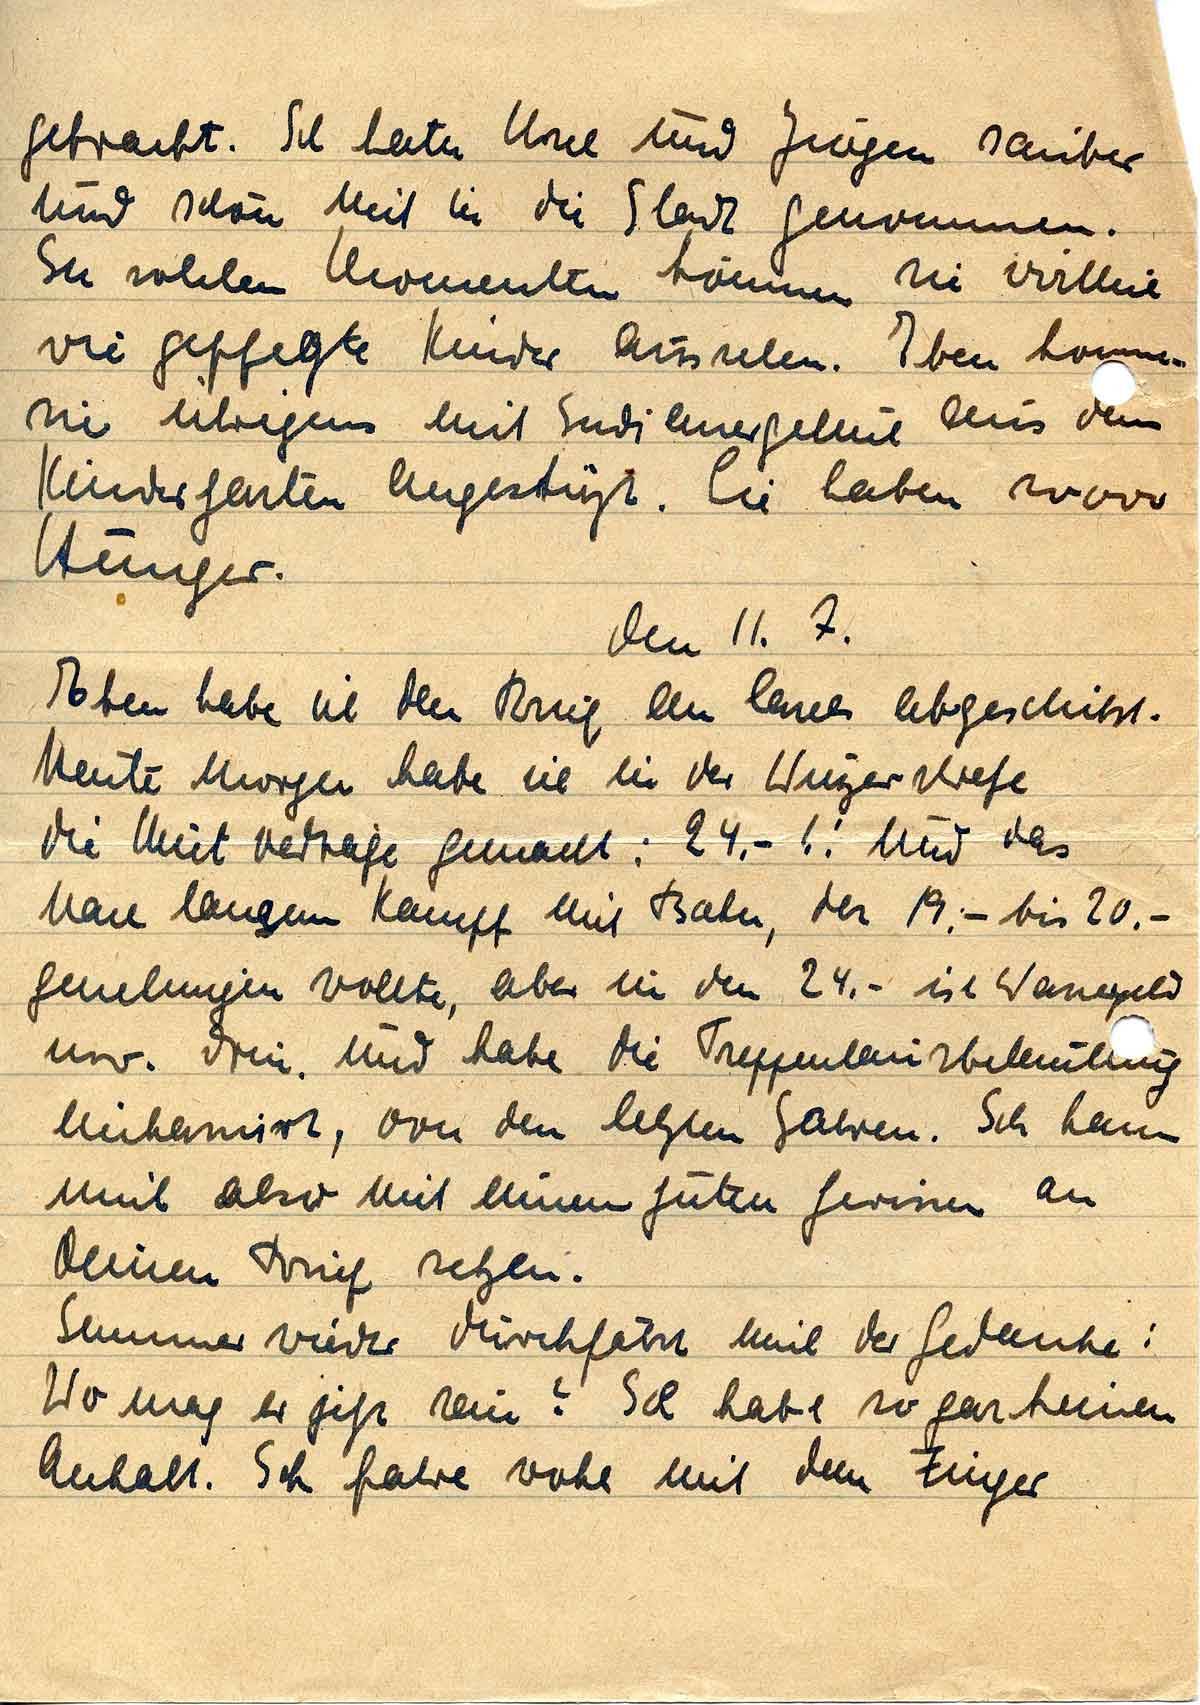 gebracht. Ich hatte Ursel und Jürgen sauber
und schön mit in die Stadt genommen.
In solchen Momenten können sie wirklich
wie gepflegte Kinder aussehen. Eben kommen
sie übrigens mit Indianergeheul aus dem
Kindergarten angestürzt. Sie haben sooo
Hunger.
den 11. 7.
Eben habe ich den Brief an abgeschickt.
Heute Morgen habe ich in der Winzerstraße
die Mietverträge gemacht: 24.- !! Und das
nach langem Kampf mit Bahn, der 19.- bis 20.-
genehmigen wollte, aber in den 24.- ist Wassergeld
usw. drin. Und habe die Treppenhausbeleuchtung
einkassiert, von den letzten Jahren. Ich kann
mich also mit einem guten Gewissen an
Deinen Brief setzen.
Immer wieder durchfährt mich der Gedanke:
Wo mag er jetzt sein? Ich habe so gar keinen
Anhalt. Ich fahre wohl mit dem Finger